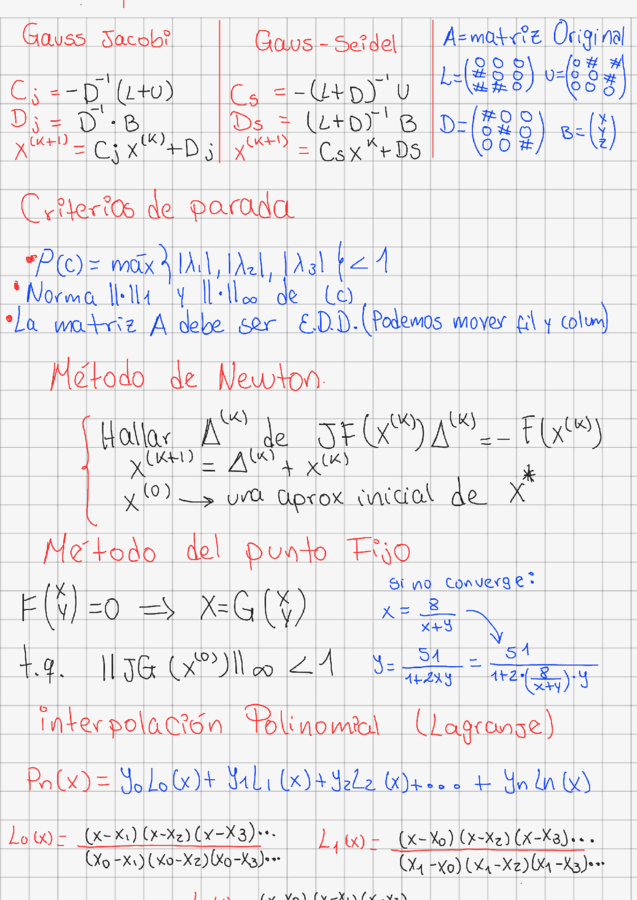 Gauss Jacobi
Cj = -D⁻¹ (L+U)
Dj = D⁻¹ · B
X⁽ᴷ⁺¹⁾ = Cj X⁽ᴷ⁾ + Dj
Gaus-Seidel
Cs = -(L+D)⁻¹ U
Ds = (L+D)⁻¹ B
X⁽ᴷ⁺¹⁾ = Cs Xᴷ + Ds
A = matriz Original
L = (0 0 0 / # 0 0 / # # 0) U = (0 # # / 0 0 # / 0 0 0)
D = (# 0 0 / 0 # 0 / 0 0 #) B = (x / y / z)
Criterios de parada
• ρ(C) = máx { |λ₁|, |λ₂|, |λ₃| { < 1
• Norma ||·||1 y ||·||∞ de (C)
• La matriz A debe ser E.D.D. (Podemos mover fil y colum)
Método de Newton.
Hallar Δ⁽ᴷ⁾ de JF(X⁽ᴷ⁾) Δ⁽ᴷ⁾ = - F(X⁽ᴷ⁾)
X⁽ᴷ⁺¹⁾ = Δ⁽ᴷ⁾ + X⁽ᴷ⁾
X⁽⁰⁾ → una aprox inicial de X*
Método del punto Fijo
F(x / y) = 0 ⇒ X = G(x / y)
t.q. ||JG (X⁽⁰⁾)||∞ < 1
si no converge:
x = 8/(x+y)
y = 51/(1+2xy) = 51/(1+2·(8/(x+y))·y)
interpolación Polinomial (Lagranje)
Pn(x) = y₀L₀(x) + y₁L₁(x) + y₂L₂(x) + ... + ynLn(x)
L₀(x) = (x-x₁)(x-x₂)(x-x₃)... / (x₀-x₁)(x₀-x₂)(x₀-x₃)...
L₁(x) = (x-x₀)(x-x₂)(x-x₃)... / (x₁-x₀)(x₁-x₂)(x₁-x₃)...